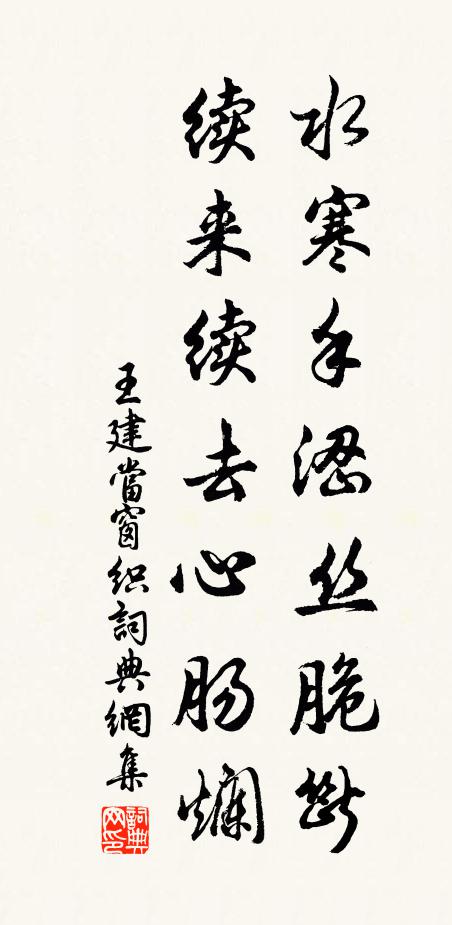 水寒手涩丝脆断
续来续去心肠烂
王建當窗织詞典網集
詞典网印